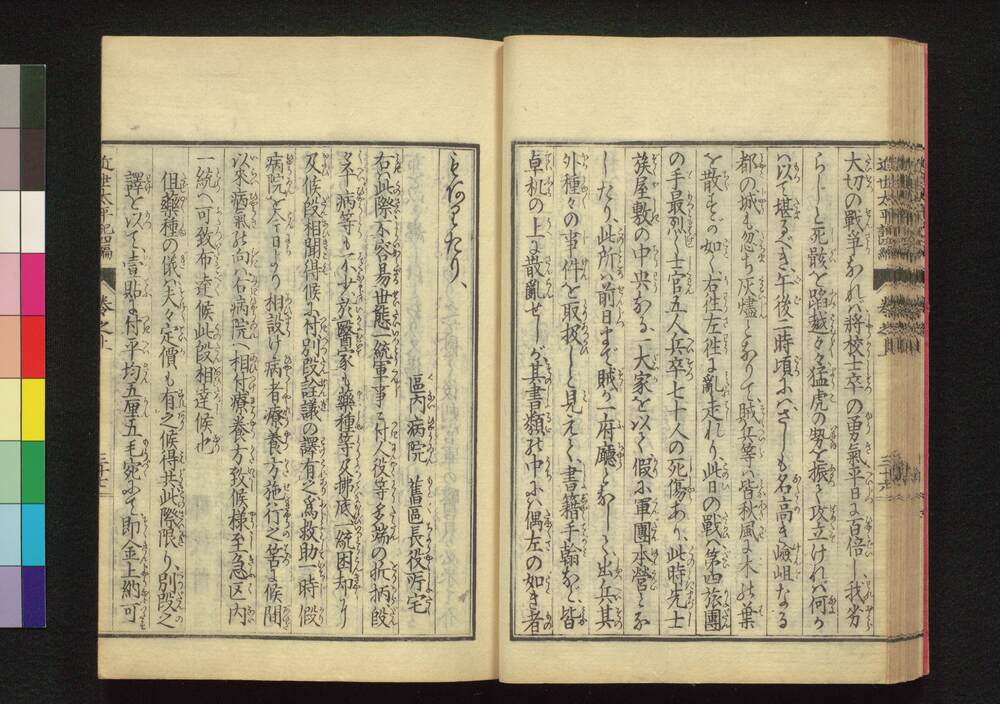 大切の戦争なれバ将校士卒の勇氣平日に百倍し我劣
らじと死骸を踏越々々猛虎の勢を振ひ攻立けれバ何か
ハ以て堪るべき午後一時頃にハさしも名高き嶮岨なる
都の城も忽ち灰燼となりて賊兵等ハ皆秋風に木の葉
を散すの如く右徃左徃に乱走れり此日の戦ひ第四旅團
の手最烈く士官五人兵卒七十人の死傷あり此時先士
族屋敷の中央なる一大家を以て假に軍團本營とな
したり、此所ハ前日まで賊が一府廳となして出兵其
外種々の事件を取扱しと見えて書籍手翰など皆
卓机の上に散亂せしが其書類の中にハ偶左の如き者
もありたり、
區内病院 舊區長役所宅
右ハ此際不容易世態一統軍事ニ付人役等多端の折柄段
々不病等も不少於醫家も藥種等及拂底一統困却ニ
及候段相聞得候ニ付別段詮議の譯有之為救助一時假
病院を本日より相設け病者療養方施行之筈ニ候間
以來病氣の向ハ右病院へ相付療養方致候様至急区内
一統へ可致布達候此段相達候也
但藥種の儀ハ夫々定價も有之候得共此際限り別段之
譯を以て、壹貼ニ付平均五厘五毛宛にて即金上納可
近世太平記四編
巻之上
三十七
近世太平記四編
巻之上